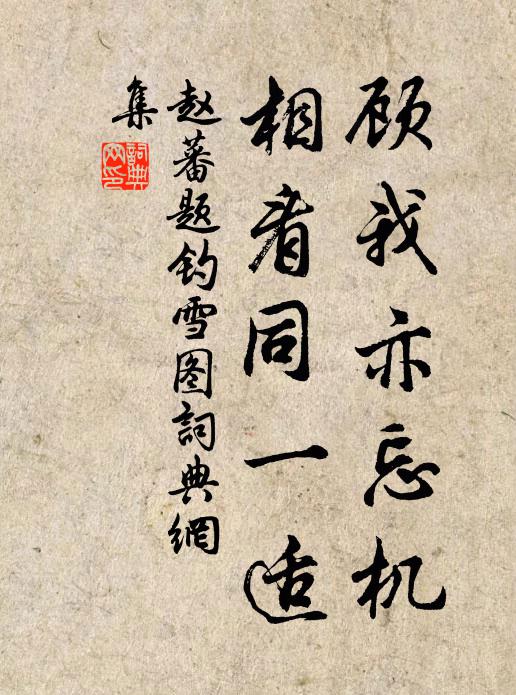 顾我亦忘机
相看同一适
赵蕃题钓雪图詞典網
集
詞典
网印